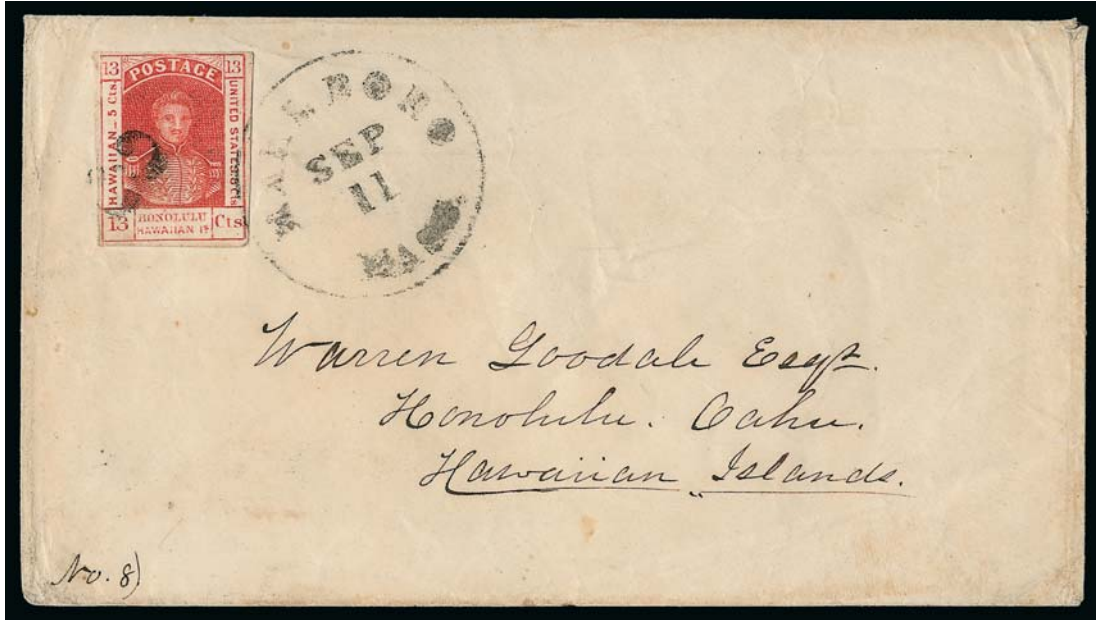 13 POSTAGE 13
HAWAIIAN _ 5 Cts.
UNITED STATES 8 Cts
13 HONOLULU Cts
HAWAIIAN Is.
MARLBORO
SEP
11
MASS
Warren Goodale Esqr.
Honolulu. Oahu.
Hawaiian Islands.
No. 8)